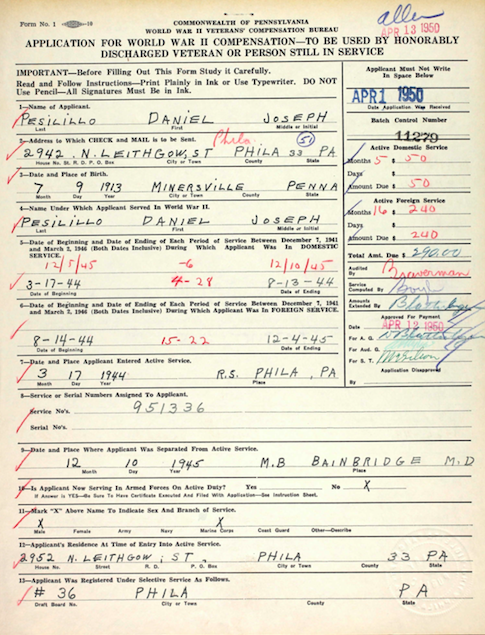 Form No. 1
COMMONWEALTH OF PENNSYLVANIA
WORLD WAR II VETERANS' COMPENSATION BUREAU
allen
APR 13 1950
APPLICATION FOR WORLD WAR II COMPENSATION—TO BE USED BY HONORABLY
DISCHARGED VETERAN OR PERSON STILL IN SERVICE
IMPORTANT—Before Filling Out This Form Study it Carefully.
Read and Follow Instructions—Print Plainly in Ink or Use Typewriter. DO NOT
Use Pencil—All Signatures Must be in Ink.
Applicant Must Not Write
In Space Below
APR 1 1950
Date Application Was Received
Batch Control Number
11279
1—Name of Applicant.
PESILILLO DANIEL JOSEPH
Last First Middle or Initial
2—Address to Which CHECK and MAIL is to be Sent. Phila. 51
2942 N. LEITHGOW, ST PHILA 33 PA
House No. St. R.D. P.O. Box City or Town County State
Active Domestic Service
Months 5 $ 50
Days $
Amount Due $ 50
3—Date and Place of Birth.
7 9 1913 MINERSVILLE PENNA
Month Day Year City or Town County State
Active Foreign Service
Months 16 $ 240
Days $
Amount Due $ 240
4—Name Under Which Applicant Served In World War II.
PESILILLO DANIEL JOSEPH
Last First Middle or Initial
Total Amt. Due $ 290.00
5—Date of Beginning and Date of Ending of Each Period of Service Between December 7, 1941
and March 2, 1946 (Both Dates Inclusive) During Which Applicant Was In DOMESTIC
SERVICE.
12/5/45 -6 12/10/45
3-17-44 4-28 8-13-44
Date of Beginning Date of Ending
Audited By Braverman
Service Computed By
Amounts Extended By
Approved For Payment
Date APR 12 1950
For A. G.
For Aud. G.
For S. T.
Application Disapproved
By
6—Date of Beginning and Date of Ending of Each Period of Service Between December 7, 1941
and March 2, 1946 (Both Dates Inclusive) During Which Applicant Was In FOREIGN SERVICE.
8-14-44 15-22 12-4-45
Date of Beginning Date of Ending
7—Date and Place Applicant Entered Active Service.
3 17 1944 R.S. PHILA, PA
Month Day Year Place
8—Service or Serial Numbers Assigned To Applicant.
Service No's. 951336
Serial No's.
9—Date and Place Where Applicant Was Separated From Active Service.
12 10 1945 M.B BAINBRIDGE M.D
Month Day Year Place
10—Is Applicant Now Serving In Armed Forces On Active Duty? Yes No X
If Answer is YES—Be Sure To Have Certificate Executed And Filed With Application—See Instruction Sheet.
11—Mark "X" Above Name To Indicate Sex And Branch of Service.
X X
Male Female Army Navy Marine Corps Coast Guard Other—Describe
12—Applicant's Residence At Time of Entry Into Active Service.
2952 N. LEITHGOW, ST, PHILA 33 PA
House No. Street R.D. P.O. Box City or Town County State
13—Applicant Was Registered Under Selective Service As Follows.
# 36 PHILA PA
Draft Board No. City or Town County State